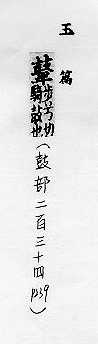 玉篇
鼙步兮切騎鼓也(鼓部二百三十四)